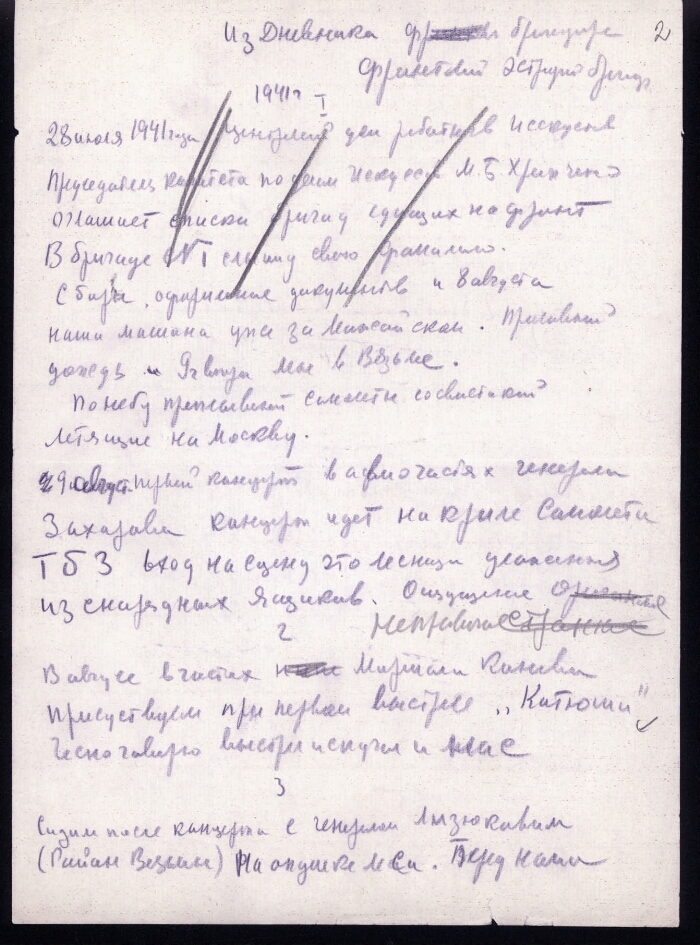 Из Дневника бригадира 2
Фронтовой эстрадной бригады
1941г I
28 июля 1941 года Центральный дом работников Исскуств
Председатель комитета по делам Искусств М.Б. Храпченко
оглашает списки бригад едущих на фронт
В бригаде №1 слышу свою фамилию.
Сборы, оформление документов и 8 августа
наша машина уже за Можайском. Проливной
дождь и мы в Вязьме.
По небу проплывают самолеты со свастикой
летящие на Москву.
9 август. первый концерт в авиочастях генерала
Захарова концерт идет на крыле самолета
ТБ3 вход на сцену это лесница уложенная
из снарядных ящиков. Ощущение
непривычное странное
2
В августе в частях Маршала Конева
Присуствуем при первом выстреле „Катюши"
Чесно говорю выстрел испугал и нас
3
Сидим после концерта с генералом Лизюковым
(Район Вязьмы) На опушке леса. Перед нами